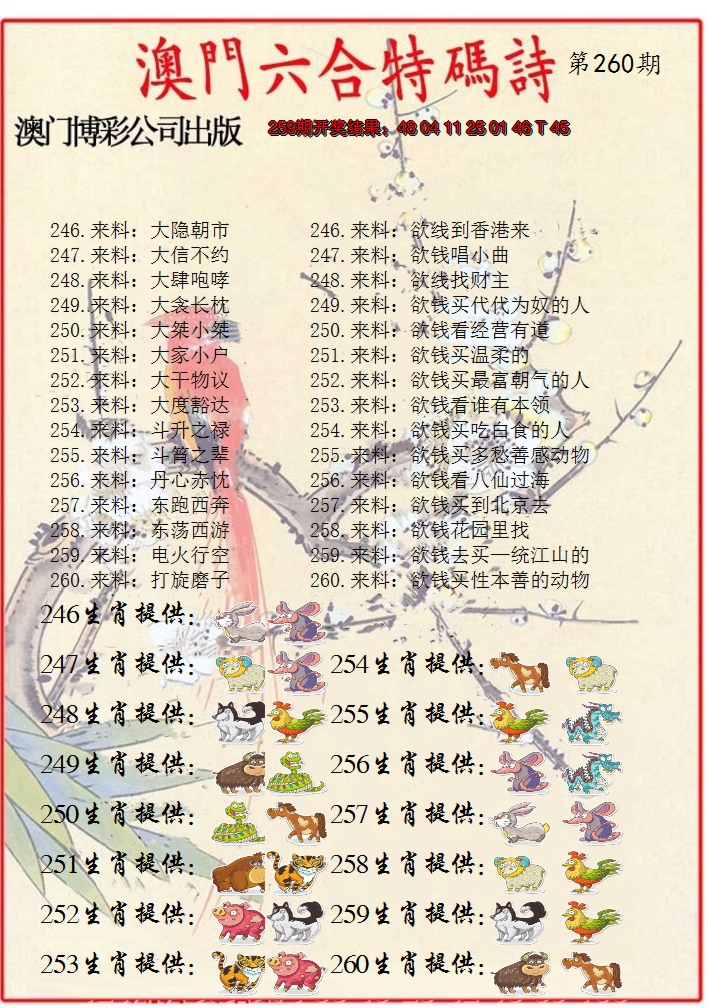 澳門六合特碼詩 第260期
澳门博彩公司出版 259期开奖结果：48 04 11 25 01 46 T 45
246.来料：大隐朝市 246.来料：欲线到香港来
247.来料：大信不约 247.来料：欲钱唱小曲
248.来料：大肆咆哮 248.来料：欲线找财主
249.来料：大衾长枕 249.来料：欲钱买代代为奴的人
250.来料：大桀小桀 250.来料：欲钱看经营有道
251.来料：大家小户 251.来料：欲钱买温柔的
252.来料：大干物议 252.来料：欲钱买最富朝气的人
253.来料：大度豁达 253.来料：欲钱看谁有本领
254.来料：斗升之禄 254.来料：欲钱买吃白食的人
255.来料：斗筲之辈 255.来料：欲钱买多愁善感动物
256.来料：丹心赤忱 256.来料：欲钱看八仙过海
257.来料：东跑西奔 257.来料：欲钱买到北京去
258.来料：东荡西游 258.来料：欲钱花园里找
259.来料：电火行空 259.来料：欲钱去买一统江山的
260.来料：打旋磨子 260.来料：欲钱买性本善的动物
246生肖提供：
247生肖提供： 254生肖提供：
248生肖提供： 255生肖提供：
249生肖提供： 256生肖提供：
250生肖提供： 257生肖提供：
251生肖提供： 258生肖提供：
252生肖提供： 259生肖提供：
253生肖提供： 260生肖提供：